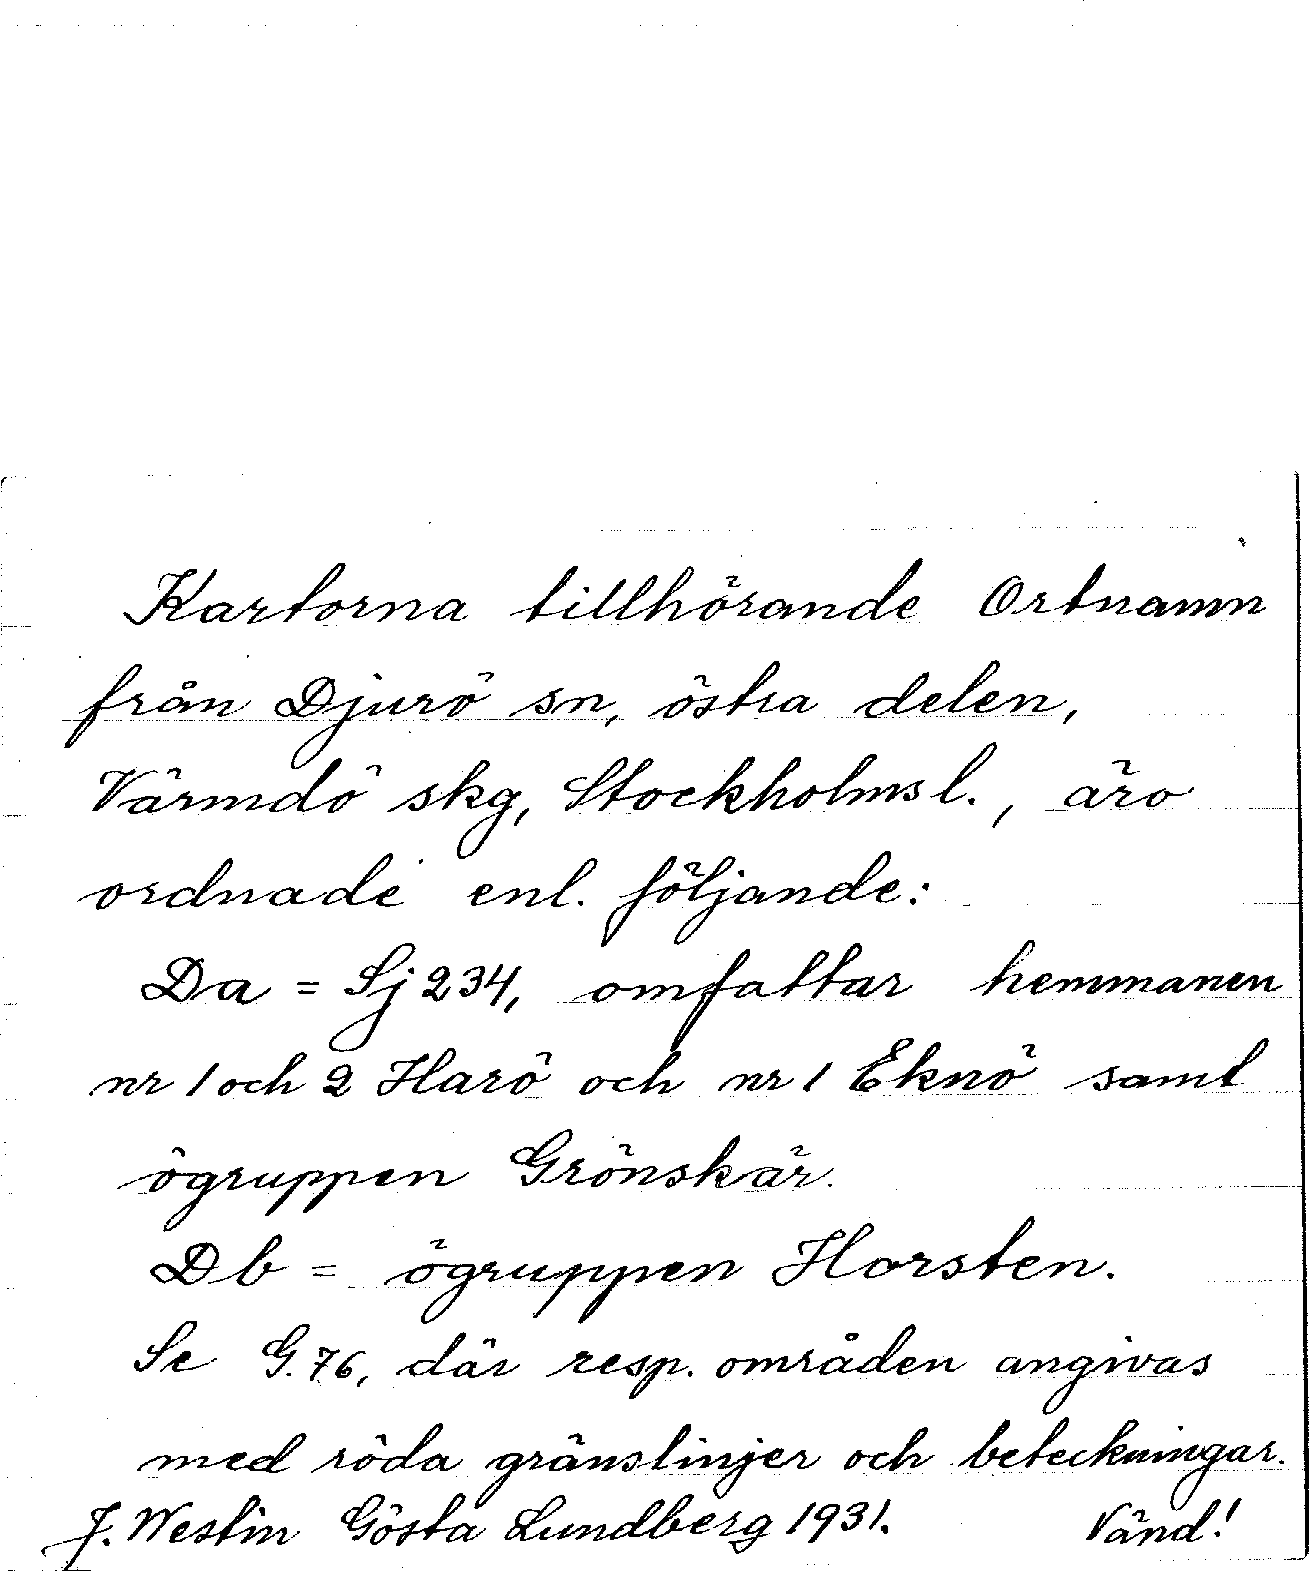 Kartorna tillhörande Ortnamn
från Djurö sn, östra delen,
Värmdö skg, Stockholms l., äro
ordnade enl. följande:
Da = Sj 234, omfattar hemmanen
nr 1 och 2 Harö och nr 1 Eknö samt
ögruppen Grönskär.
Db = ögruppen Horsten.
Se G. 76, där resp. områden angivas
med röda gränslinjer och beteckningar.
J. Westin Gösta Lundberg 1931. Vänd!